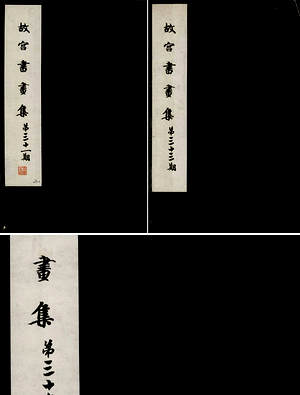 故宮書畫集第三十一期
故宮書畫集第三十三期
畫集第三十